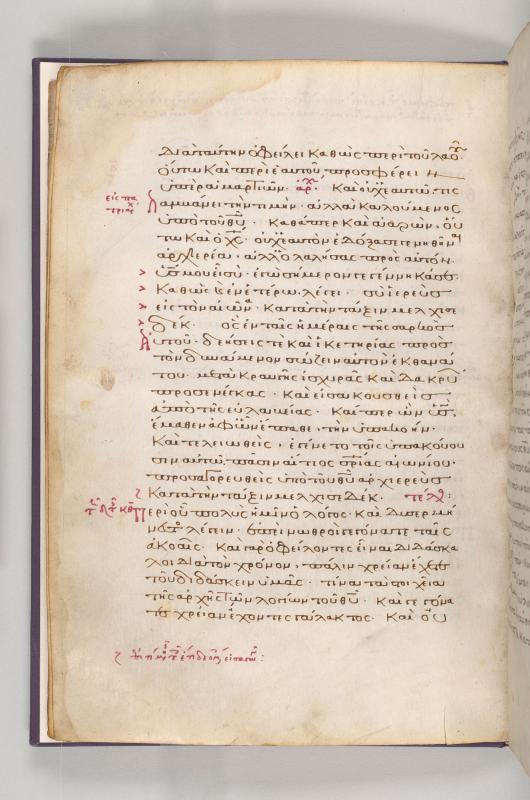 Διὰ ταύτην ὀφείλει καθὼς περὶ τοῦ λαοῦ·
οὕτω καὶ περὶ ἑαυτοῦ προσφέρειν
ὑπὲρ ἁμαρτιῶν· ἀρχ Καὶ οὐχ ἑαυτῶ τις
εἰς πα
τριάρχ
λαμβάνει τὴν τιμὴν· ἀλλὰ καλούμενος
ὑπὸ τοῦ θυ· καθάπερ καὶ ἀαρών· οὕ
τω καὶ ὁ χς· οὐχ ἑαυτὸν ἐδόξασε γενηθῆναι
ἀρχιερέα· ἀλλ' ὁ λαλήσας πρὸς αὐτόν·
υς μου εἶ σύ· ἐγὼ σήμερον γεγέννηκά σε·
Καθὼς καὶ ἐν ἑτέρω λέγει· σὺ ἱερεὺς
εἰς τὸν αἰῶνα· Κατὰ τὴν τάξιν μελχισε
δέκ· ὃς ἐν ταῖς ἡμέραις τῆς σαρκὸς
αὐτοῦ· δεήσεις τὲ καὶ ἱκετηρίας πρὸς
τὸν δυνάμενον σώζειν αὐτὸν ἐκ θανά
του· μετὰ κραυγῆς ἰσχυρᾶς καὶ δακρύ
προσενέγκας· καὶ εἰσακουσθεὶς
ἀπὸ τῆς εὐλαβείας· Καίπερ ὢν υς·
ἔμαθεν ἀφ' ὧν ἔπαθε· τὴν ὑπακοήν·
Καὶ τελειωθεὶς· ἐγένετο τοῖς ὑπακούου
σιν αὐτῶ πᾶσιν αἴτιος σρίας αἰωνίου·
προσαγορευθεὶς ὑπὸ τοῦ θυ ἀρχιερεὺς
Κατὰ τὴν τάξιν μελχισεδέκ· τελ:
Περὶ οὗ πολὺς ἡμῖν ὁ λόγος· καὶ δυσερμή
νευτος λέγειν· ἐπεὶ νωθροὶ γεγόνατε ταῖς
ἀκοαῖς· Καὶ γὰρ ὀφείλοντες εἶναι διδάσκα
λοι διὰ τὸν χρόνον· πάλιν χρείαν ἔχετε
τοῦ διδάσκειν ὑμᾶς· τίνα τὰ στοιχεῖα
τῆς ἀρχῆς τῶν λογίων τοῦ θυ· Καὶ γεγόνα
τε χρείαν ἔχοντες γάλακτος· Καὶ οὐ